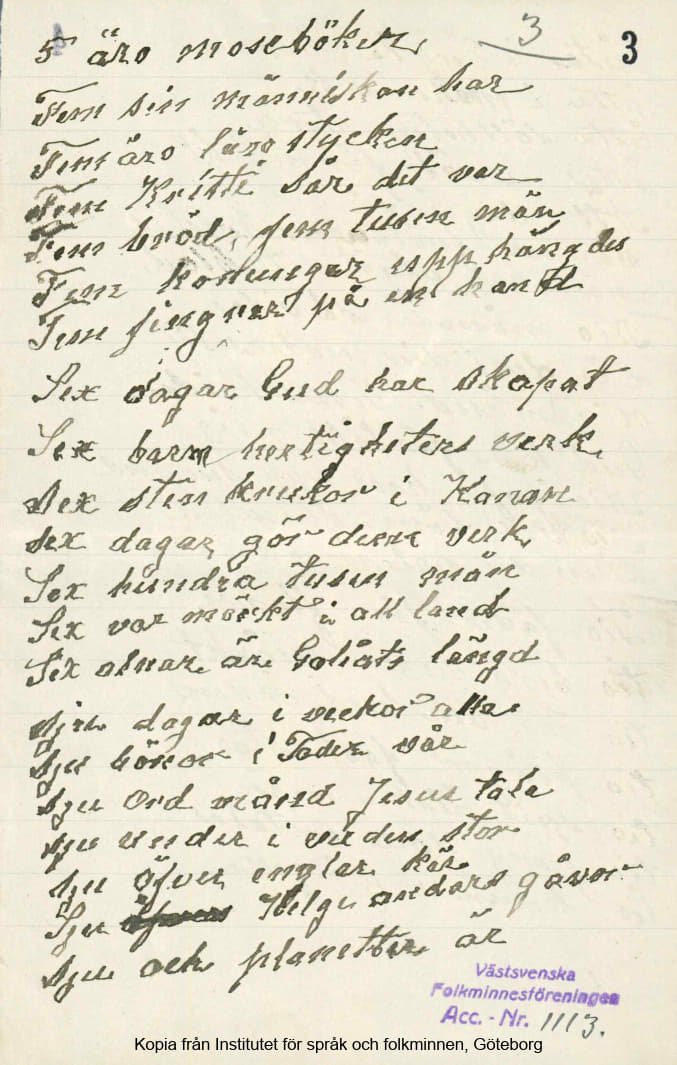 3
3
5 äro moseböker
Fem sin människan har
Fem äro läro stycken
Fem Kristi sår det var
Fem bröd, fem tusen män
Fem konungar upp hängdes
Fem fingrar på en hand
Sex dagar Gud har skapat
Sex barm hertigheters verk
Sex sten krukor i Kanan
sex dagar gör dem verk
Sex hundra tusen män
Sex var mörkt i all land
Sex alnar är Goliats längd
sju dagar i veckor alla
sju böner i Fader vår
sju ord månd Jesus tala
sju under i verlden stor
sju öfver englar kär
Sju Helge andars gåvor
sju och planetter är
Västsvenska
Folkminnesföreningen
Acc. - Nr. 1113.
Kopia från Institutet för språk och folkminnen, Göteborg